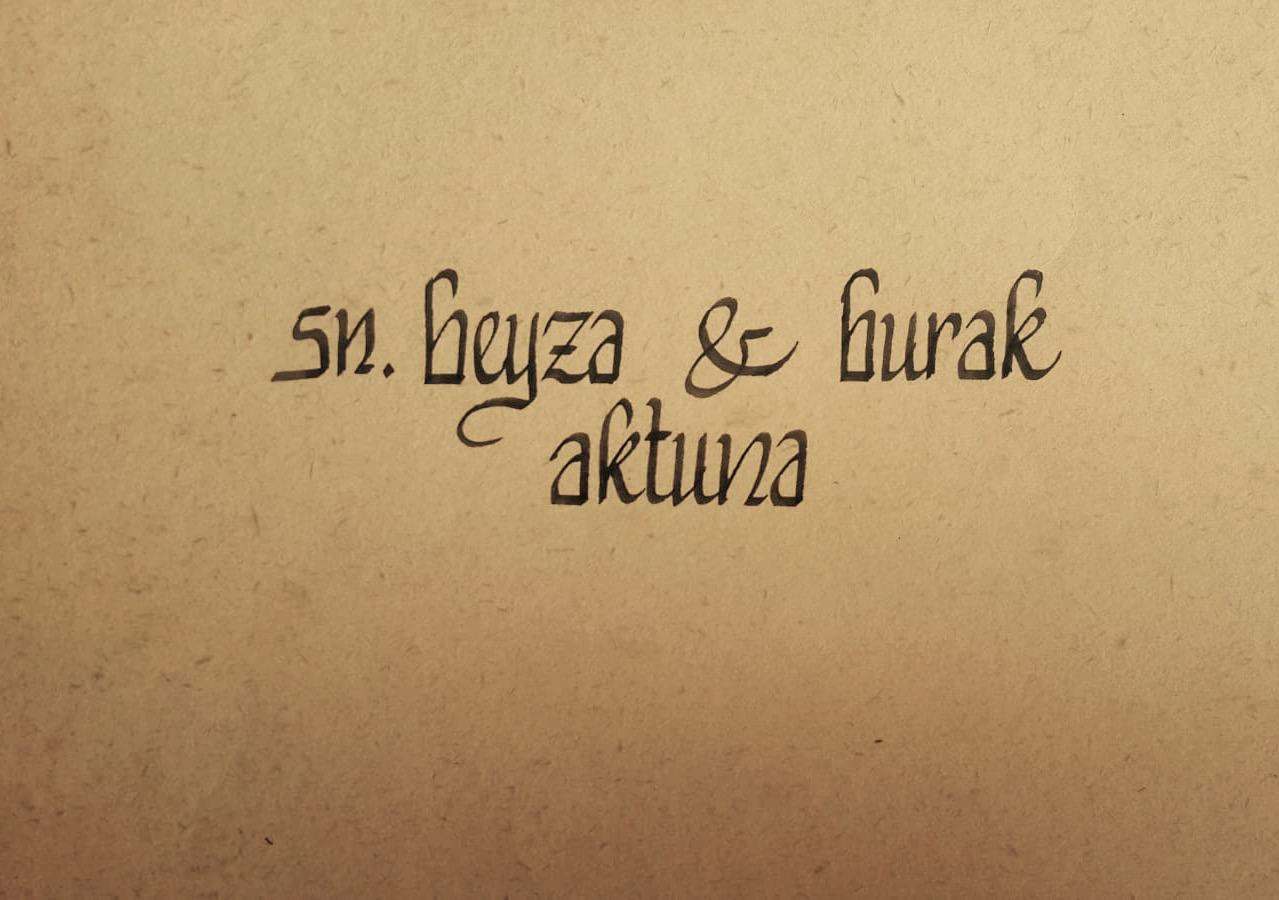 sn. beyza & burak
aktuna